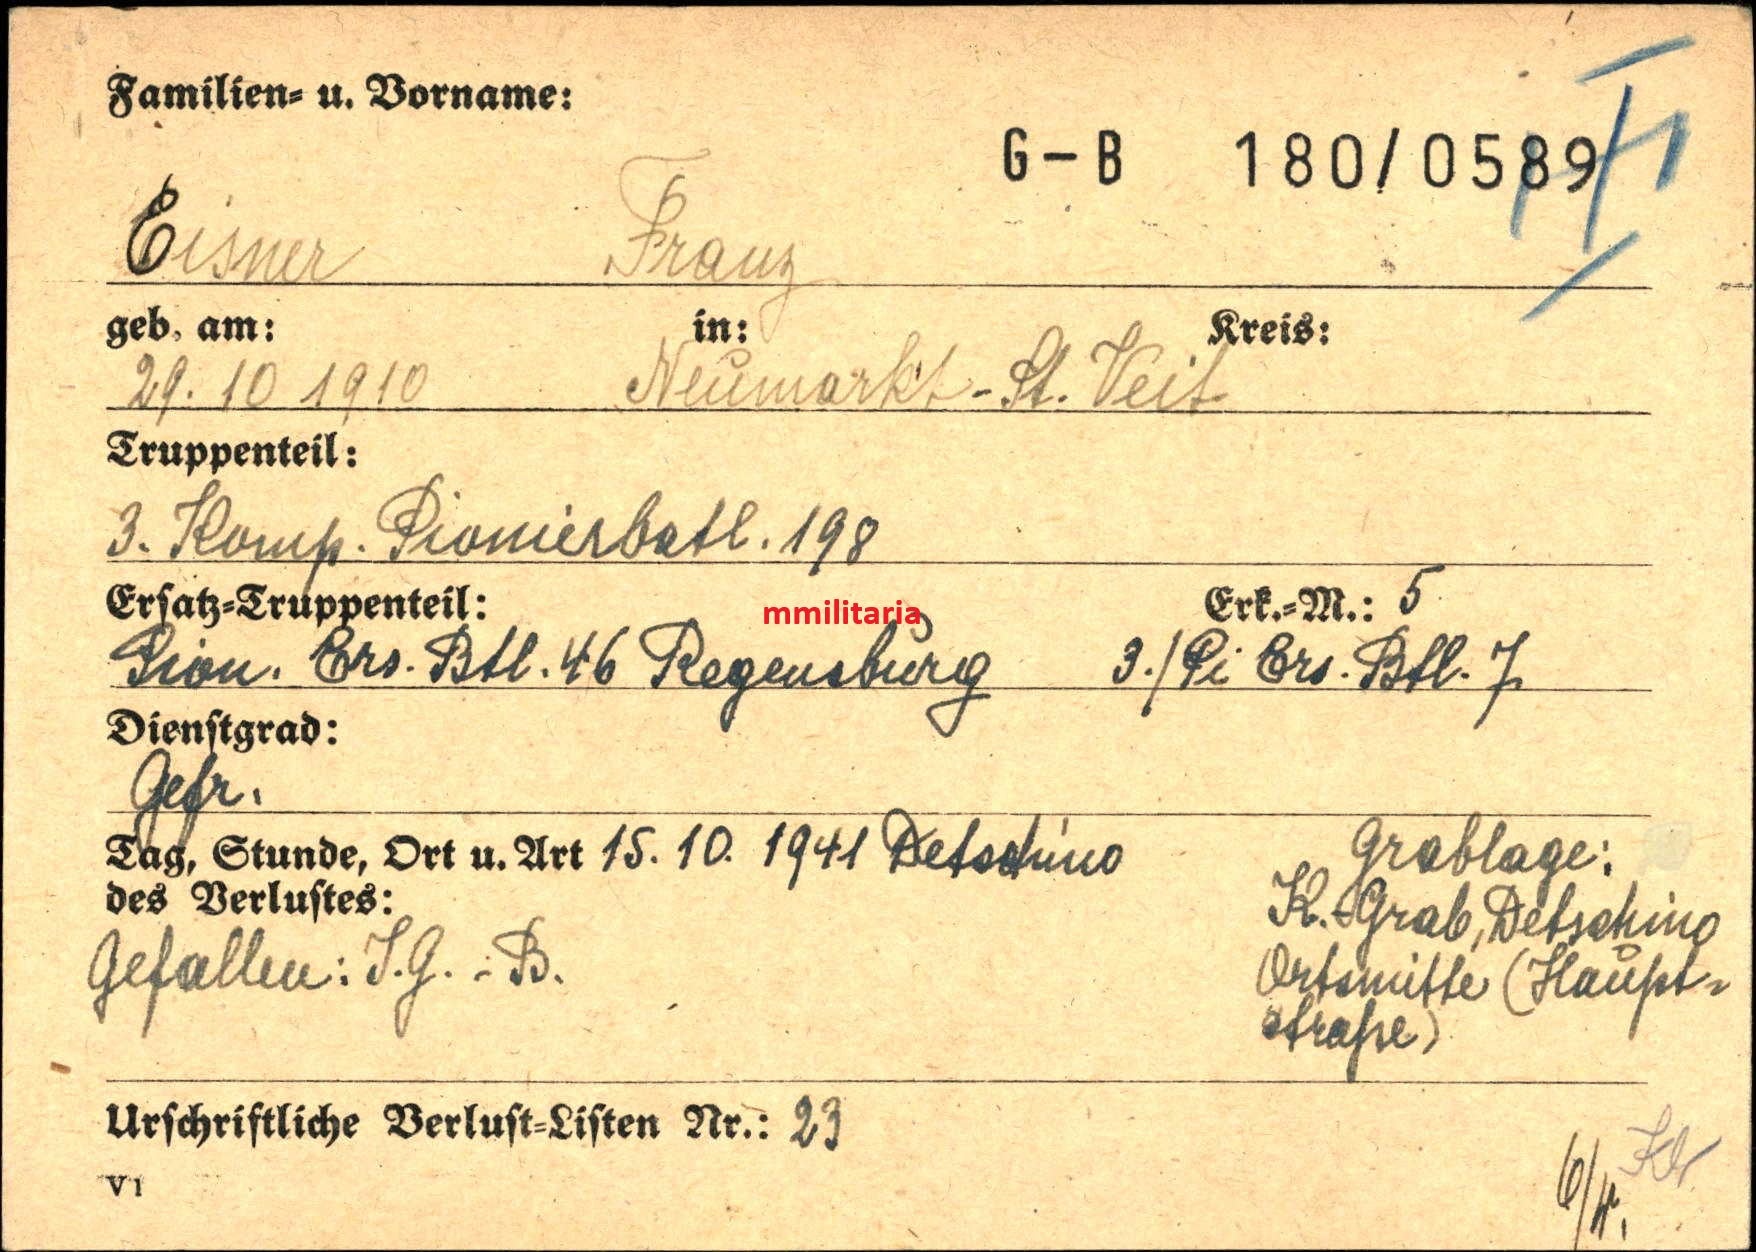 Familien= u. Vorname:
G-B 180/0589
Eisner Franz
geb. am: in: Kreis:
29. 10 1910 Neumarkt-St. Veit
Truppenteil:
3. Komp. Pionierbatl. 198
Ersatz=Truppenteil: Erk.=M.: 5
mmilitaria
Pion. Ers. Btl. 46 Regensburg 3./Pi Ers. Btl. 7
Dienstgrad:
Gefr.
Tag, Stunde, Ort u. Art 15. 10. 1941 Detschino
des Verlustes:
Grablage:
K.-Grab, Detschino
Ortsmitte (Haupt=
straße)
Gefallen: I.G. - B.
Urschriftliche Verlust=Listen Nr.: 23
V1